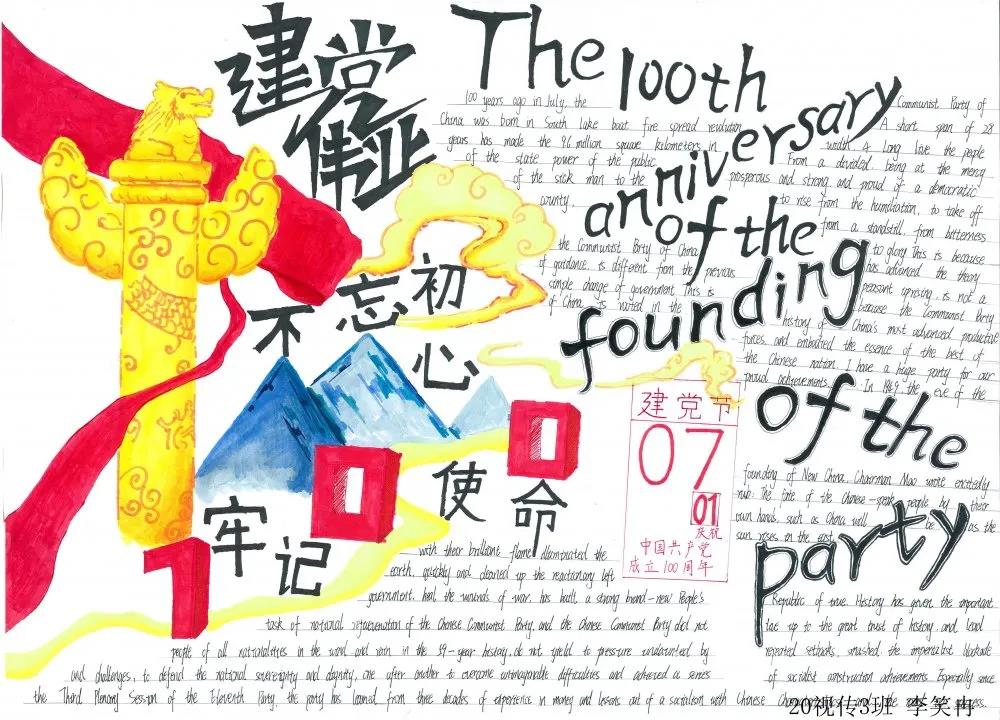 建党
伟业
The 100th
anniversary
of the
founding
of the
party
不忘初心
牢记使命
100
建党节
07
01
庆祝
中国共产党
成立100周年
100 years ago in July, the
Communist Party of
China was born in South Lake boat fire spread revolution
A short span of 28
years has made the 9.6 million square kilometers in
with A Long live the people
of the state power of the public
From a divided, being at the mercy
of the sick man to the
prosperous and strong and proud of a democratic
county,
to rise from the humiliation, to take off
from a standstill, from bitterness
the Communist Party of China
to glory This is because
of guidance, is different from the previous
has advanced the theory
simple change of government This is
peasant uprising, is not a
of China, is rooted in the
because the Communist Party
history of China's most advanced productive
forces and embodied the essence of the best of
the Chinese nation, I have a huge party for our
proud achievements. In 1949, the eve of the
founding of New China, Chairman Mao wrote excitedly
The fate of the Chinese people by their
own hands, such as China will be as the
sun rises in the east
with their brilliant flame illuminated the
earth, quickly and cleaned up the reactionary left
government, heal the wounds of war, has built a strong brand-new People's
Republic of true History has given the important
task of national rejuvenation of the Chinese Communist Party, and the Chinese Communist Party did not
up to the great trust of history and lead
people of all nationalities in the wind and rain in the 59-year history, do not yield to pressure undaunted by
reported setbacks, smashed the imperialist blockade
and challenges, to defend the national sovereignty and dignity, one after another to overcome difficulties and achieved a series
of socialist construction achievements Especially since
the Third Plenary Session of the Eleventh Party, the party has learned from three decades of experience in money and lessons out of a socialism with Chinese
20视传3班 李笑冉